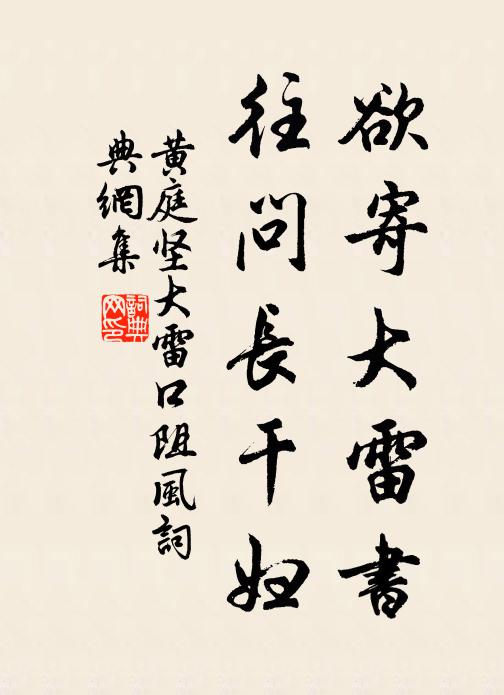 欲寄大雷書
往問長干妇
黄庭坚大雷口阻風詞
典網集
詞典网印